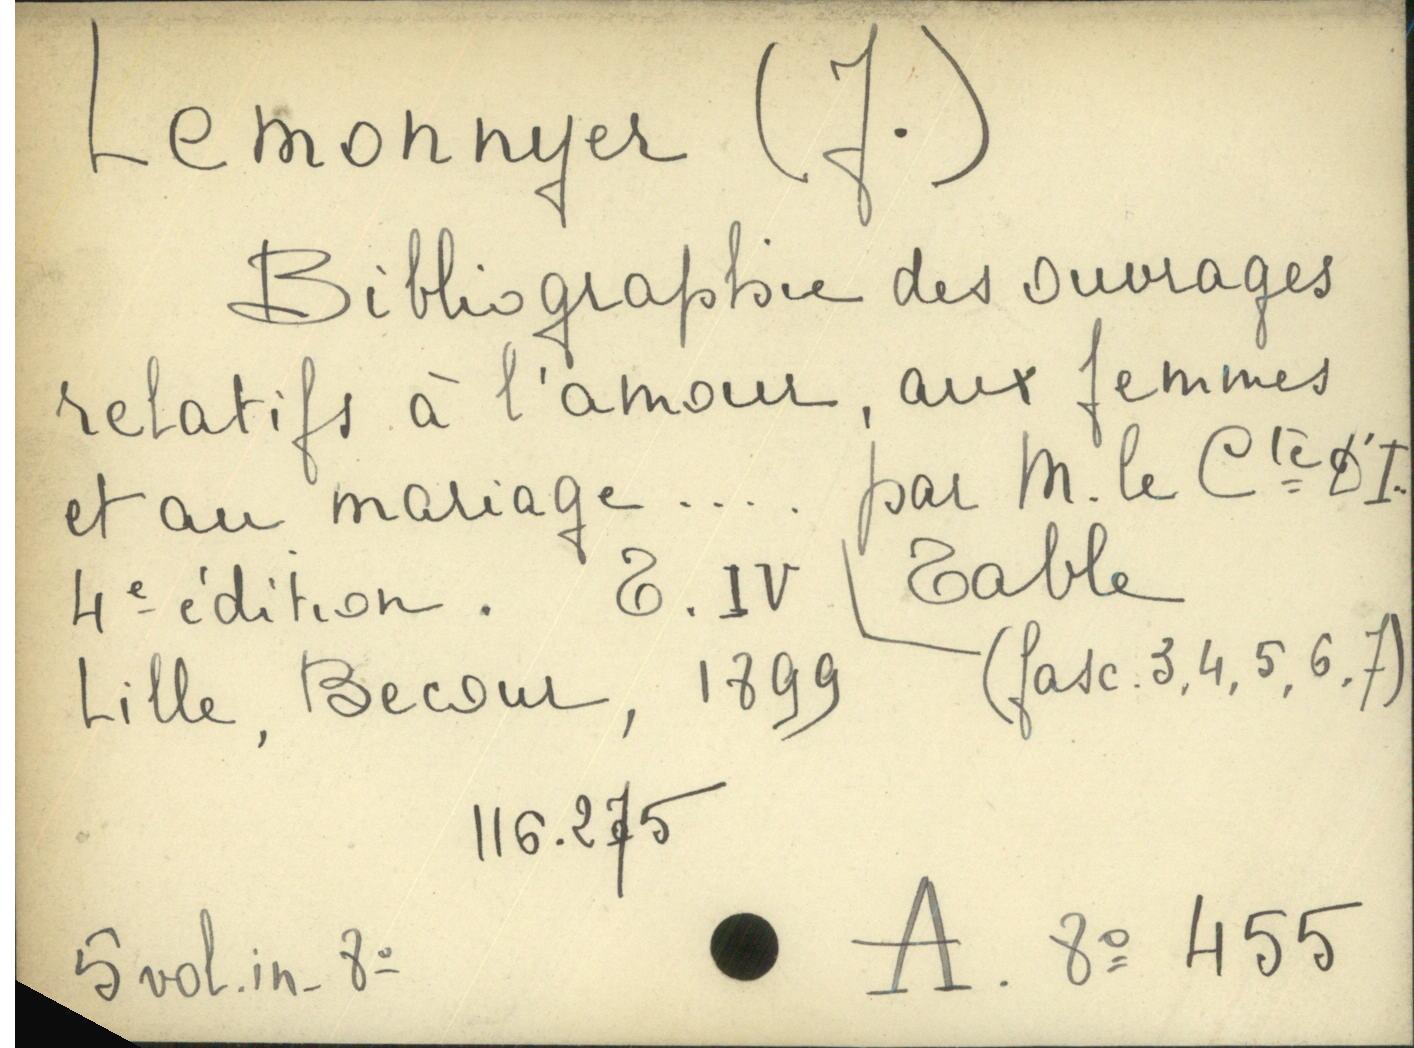 Lemonnyer (J.)
Bibliographie des ouvrages
relatifs à l'amour, aux femmes
et au mariage .... par M. le Cte D'I..
4e édition. T. IV Table
(fasc. 3, 4, 5, 6, 7)
Lille, Becour, 1899
116.275
5 vol. in-8º A. 8º 455